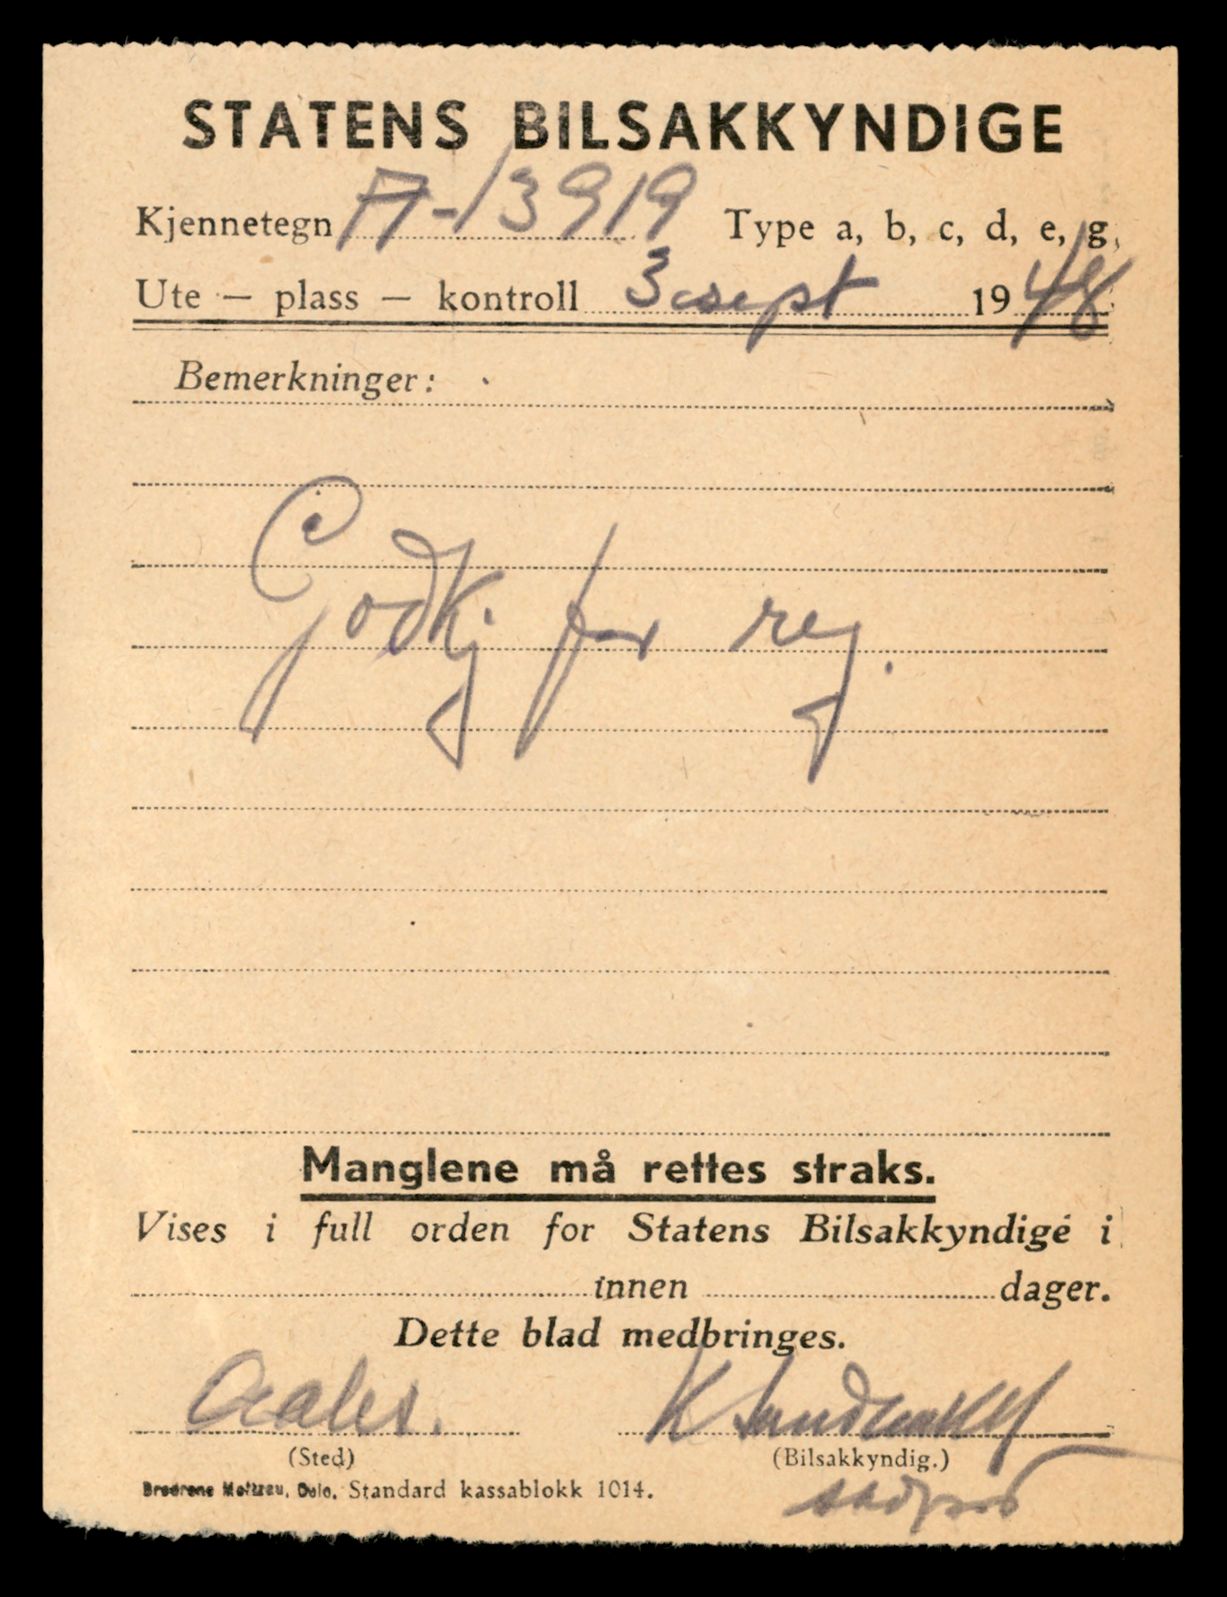 STATENS BILSAKKYNDIGE
Kjennetegn A-13919 Type a, b, c, d, e, g,
Ute — plass — kontroll 3 sept 1948
Bemerkninger:
Godkj for reg.
Manglene må rettes straks.
Vises i full orden for Statens Bilsakkyndige i
innen dager.
Dette blad medbringes.
Aales. K
(Sted) (Bilsakkyndig.)
Brødrene Moltzau, Oslo. Standard kassablokk 1014.